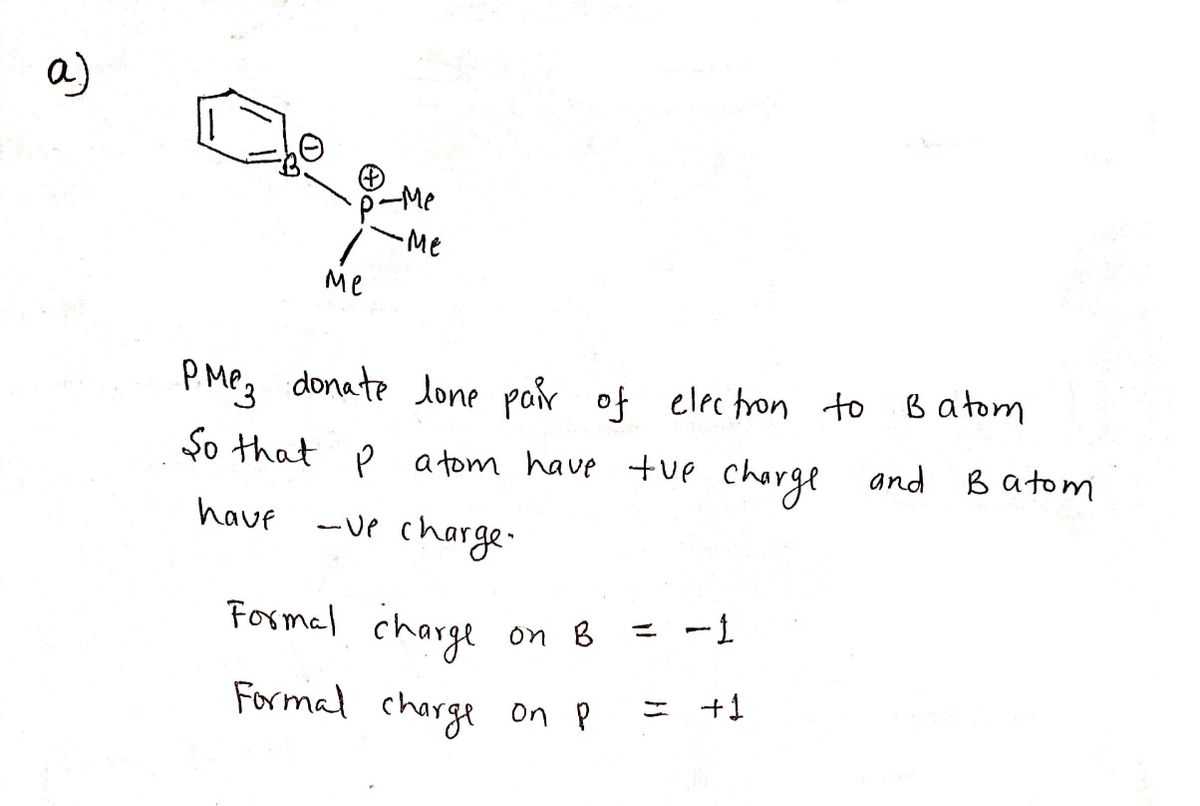 a)
B ⊖
⊕
P-Me
Me
Me
PMe₃ donate lone pair of electron to B atom
So that P atom have +ve charge and B atom
have -ve charge.
Formal charge on B = -1
Formal charge on P = +1